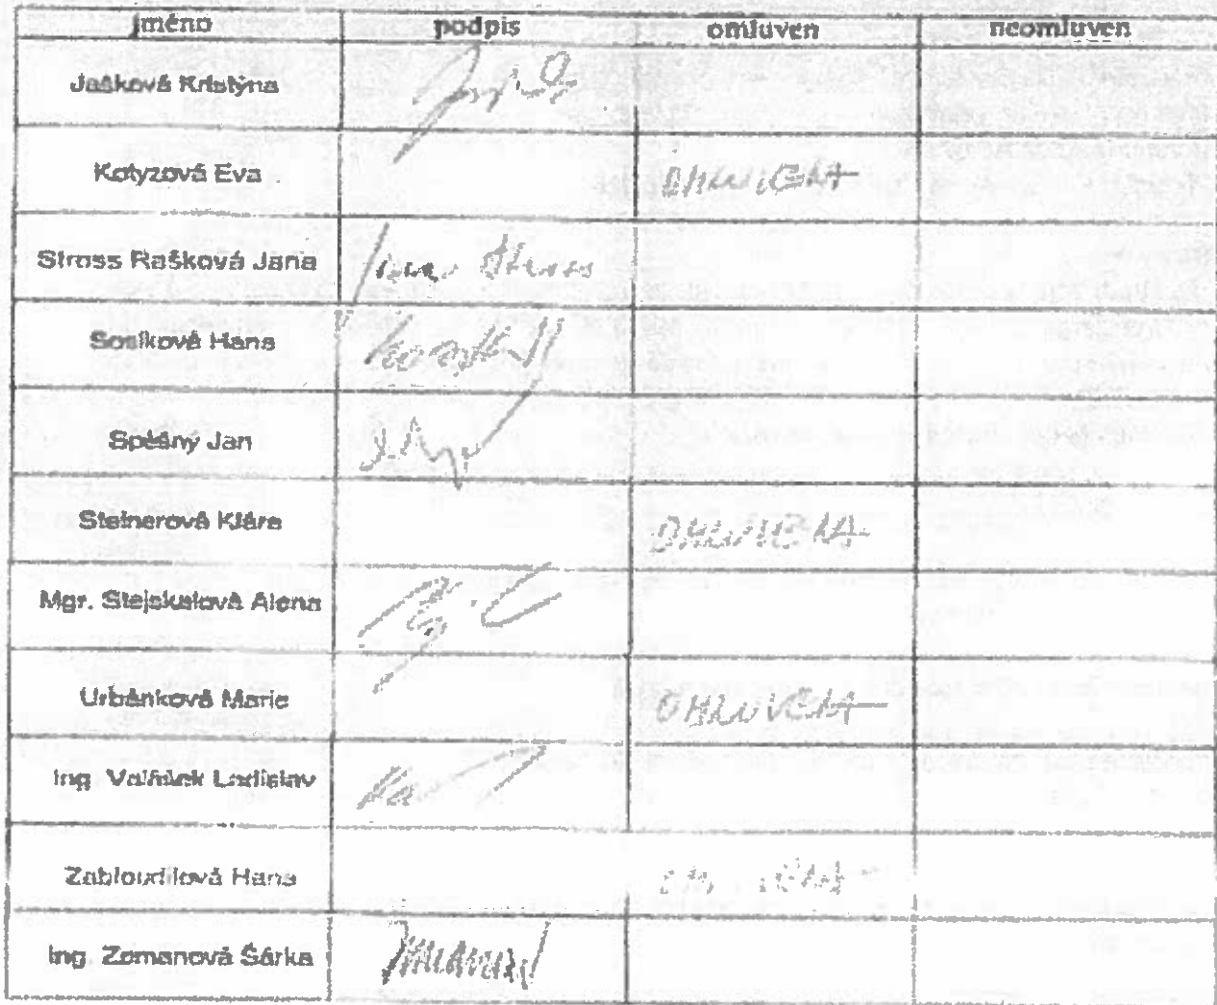 jméno podpis omluven neomluven
Jašková Kristýna
Kotyzová Eva OMLUVENA
Stross Rašková Jana
Sosíková Hana
Spěšný Jan
Steinerová Klára OMLUVENA
Mgr. Stejskalová Alena
Urbánková Marie OMLUVENA
Ing. Valášek Ladislav
Zabloudilová Hana
Ing. Zemanová Šárka